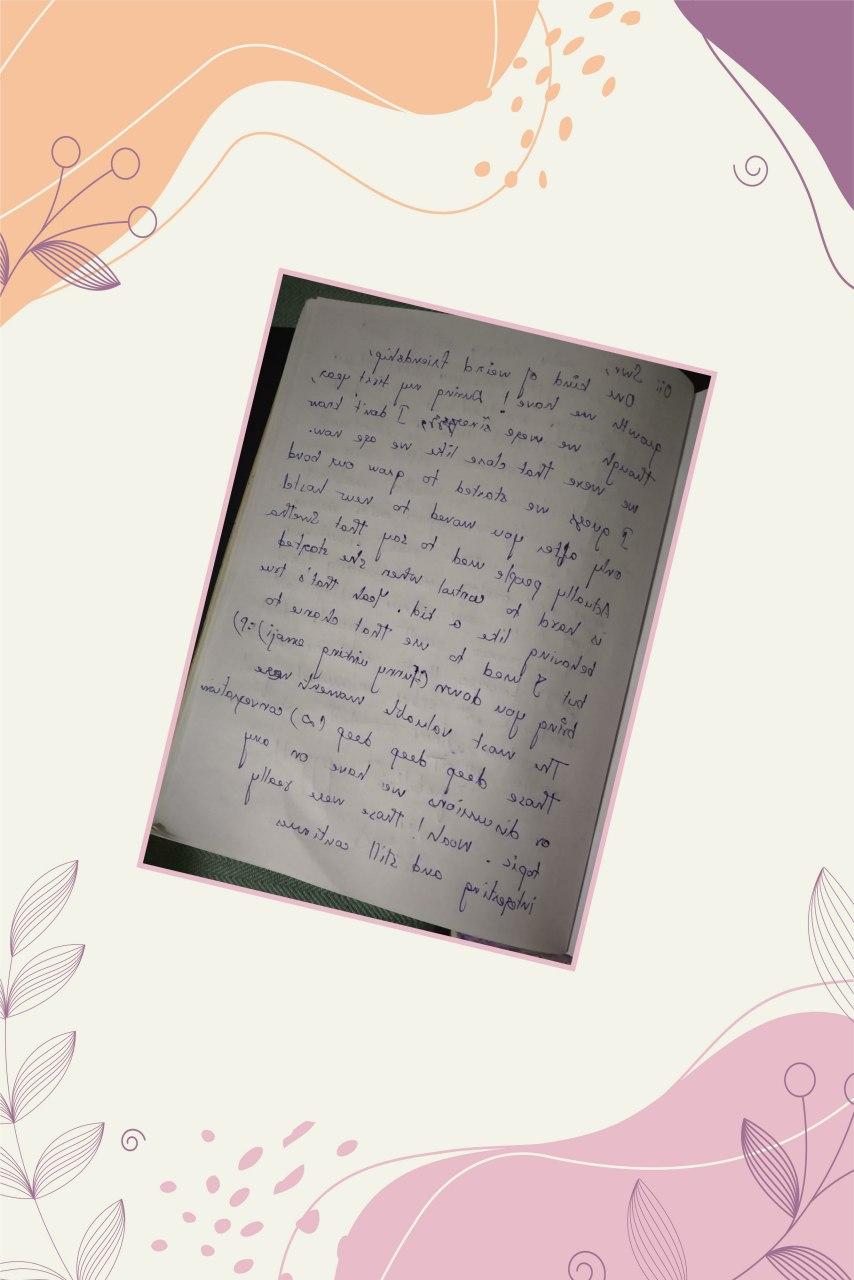 Oii Swr,
One kind of weird friendship,
growth we have! During my first year,
though we were sinegesss, I don't know
we were that close like we are now.
I guess we started to grow our bond
only after you moved to new hostel
Actually people used to say that Swetha
is hard to control when she started
behaving like a kid. Yeah that's true
but I used to use that chance to
bring you down (funny winking emoji) (;P)
The most valuable moments were
those deep deep deep (∞) conversation
or discussions we have on any
topic. Woah! those were really
interesting and still continues